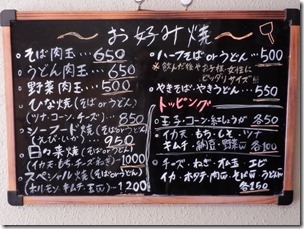 ～お好み焼～
そば肉玉…650
うどん肉玉…650
野菜肉玉…500
ひな焼(そばorうどん)
(ツナ・コーン・チーズ)…850
シーフード焼(そばorうどん)
(えび・いか)…950
日々菜焼(そばorうどん)
(イカ天・もち・チーズ・ねぎ)…1000
スペシャル焼(そばorうどん)
(ホルモン・キムチ・豆腐)…1200
ハーフそばorうどん…500
※飲んだ後やお子様・女性に
ピッタリサイズ
やきそば・やきうどん…550
トッピング
玉子・コーン・紅しょうが 各50
イカ天・もち・しそ・ツナ
キムチ・納豆・野菜 各100
チーズ・ねぎ・オレ玉・エビ
イカ・ホタテ・肉・そば・うどん
各150